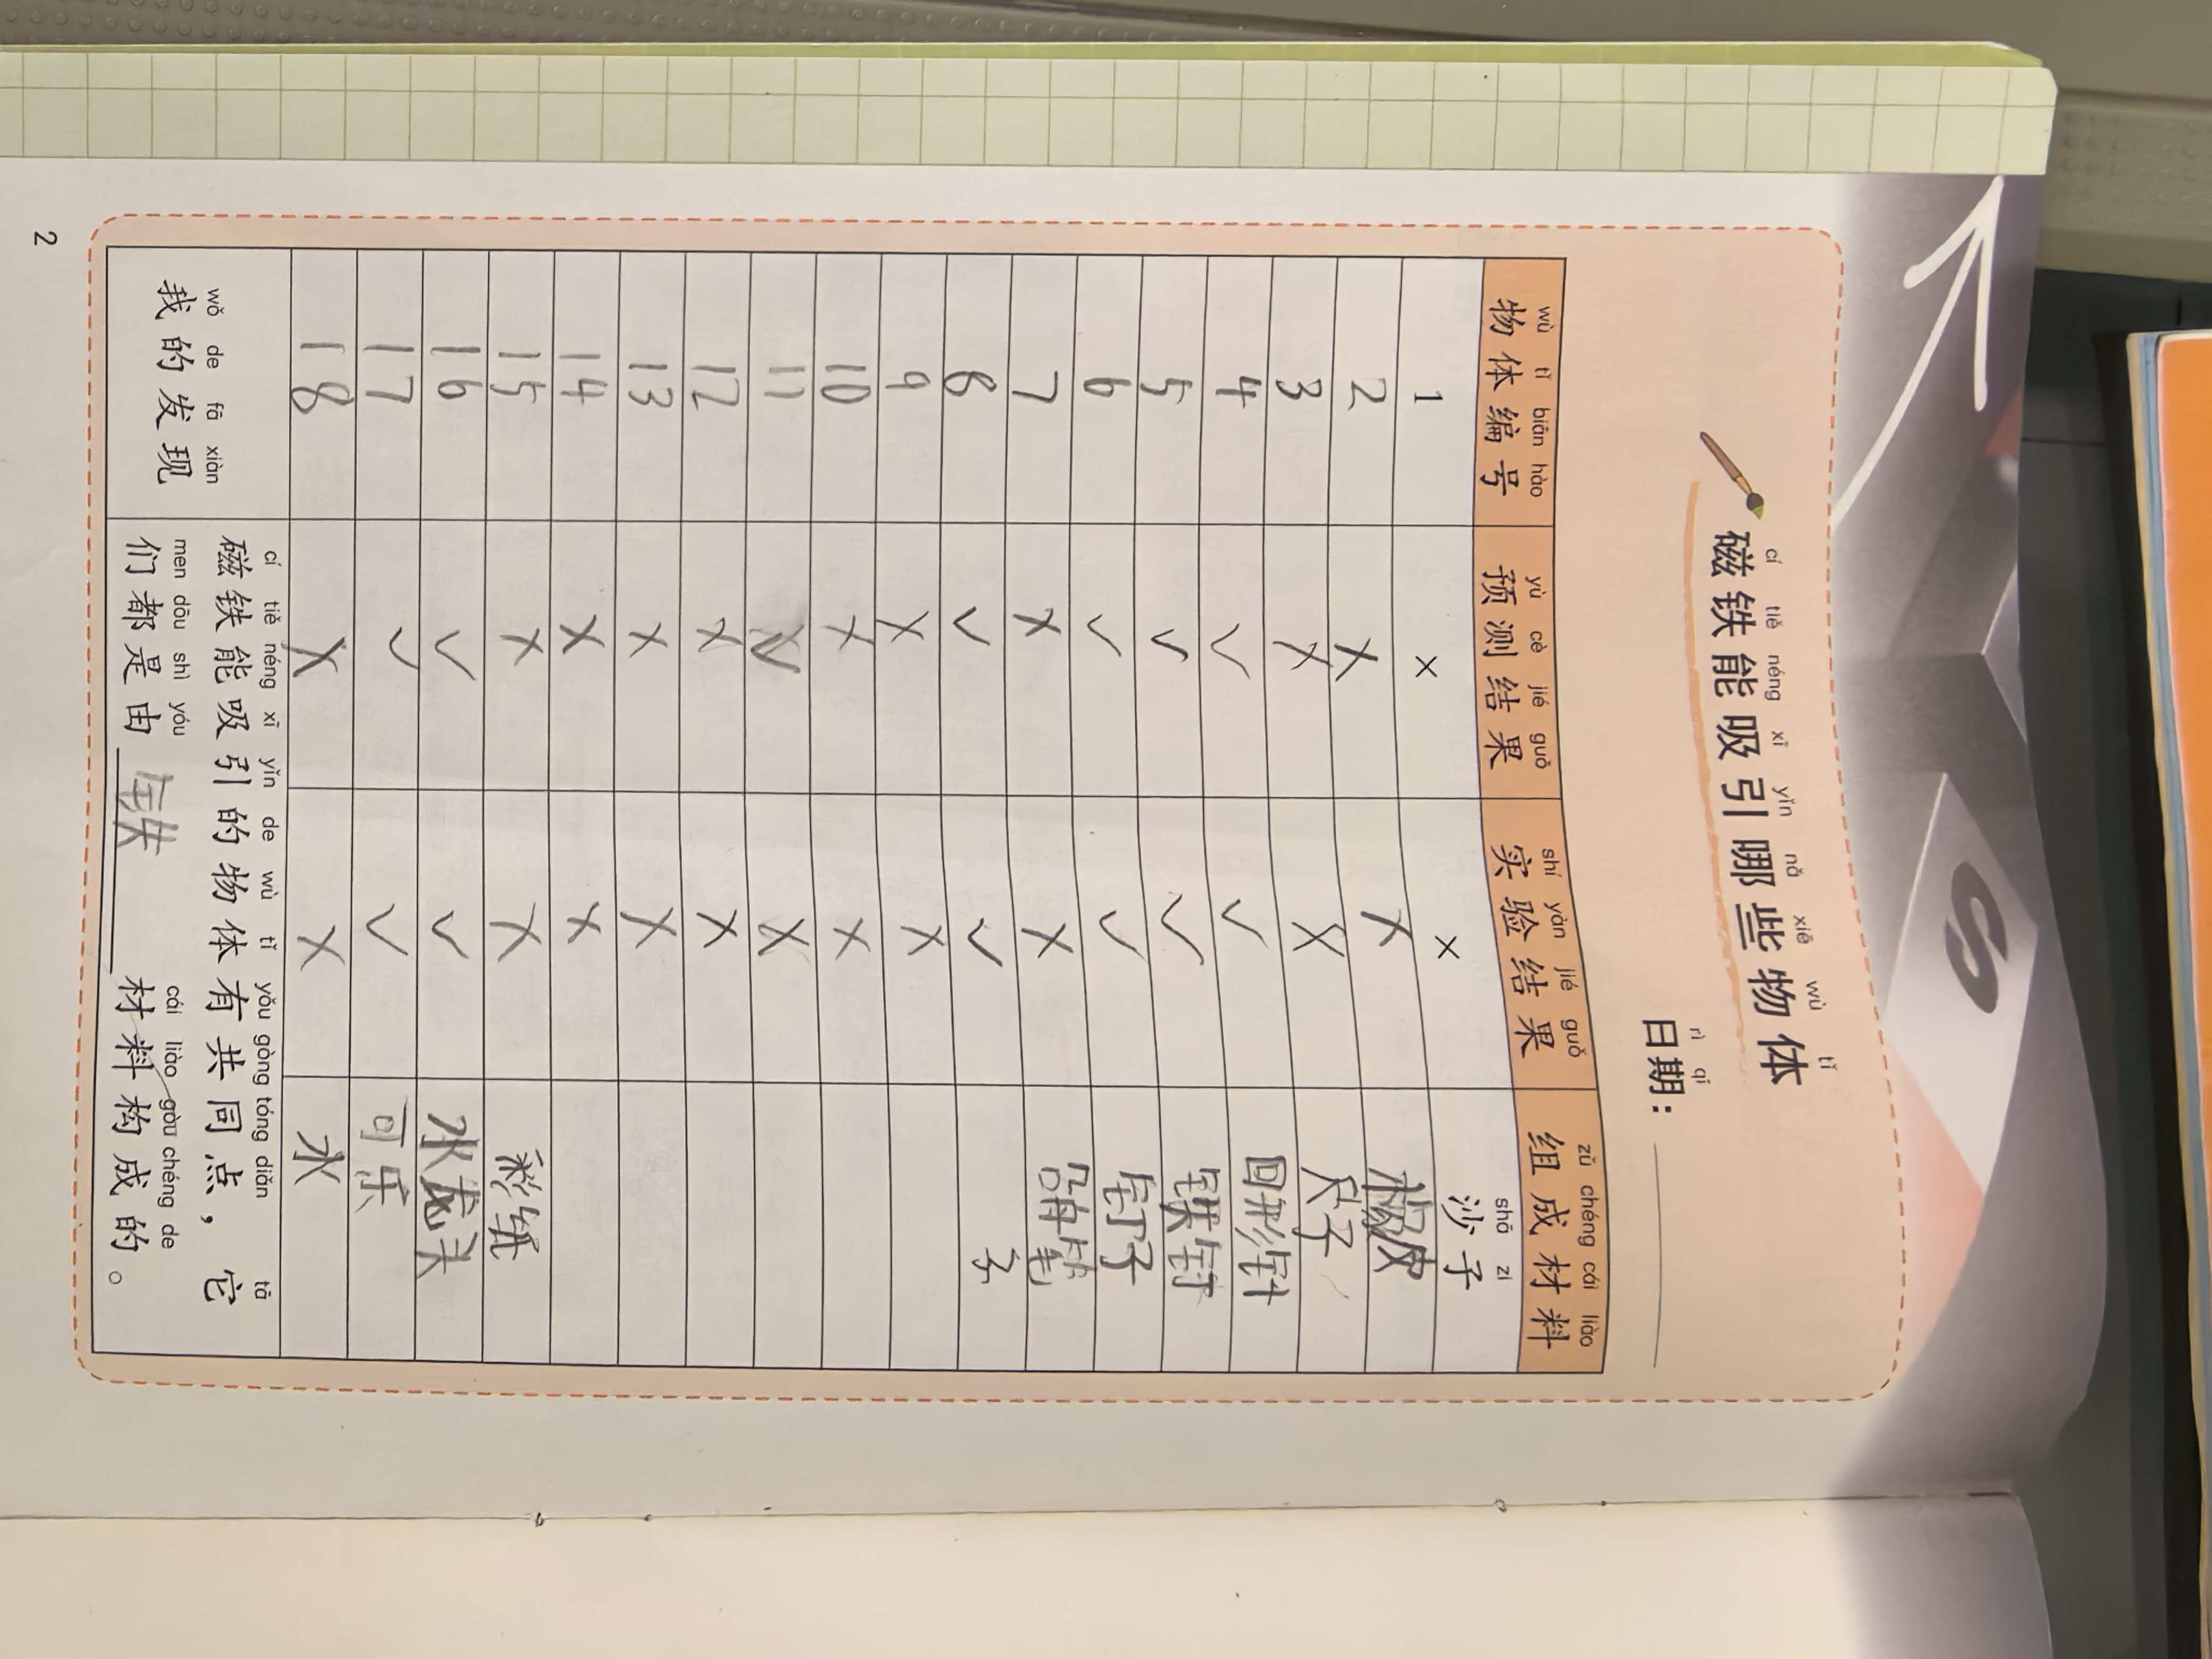 cí tiě néng xī yǐn nǎ xiē wù tǐ
磁铁能吸引哪些物体
rì qī
日期：
wù tǐ biān hào yù cè jié guǒ shí yàn jié guǒ zǔ chéng cái liào
物体编号 预测结果 实验结果 组成材料
shā zi
1 × × 沙子
2 × × 橡皮
3 × × 尺子
4 √ √ 回形针
5 √ √ 铁钉
6 √ √ 钉子
7 × × 铅笔
8 √ √ 子
9 × ×
10 × ×
11 ×
12 × ×
13 × ×
14 × ×
15 × × 彩纸
16 √ √ 水龙头
17 √ √ 可乐
18 × × 水
wǒ de fā xiàn
我的发现
cí tiě néng xī yǐn de wù tǐ yǒu gòng tóng diǎn tā
磁铁能吸引的物体有共同点，它
men dōu shì yóu cái liào gòu chéng de
们都是由 铁 材料构成的。
2
S